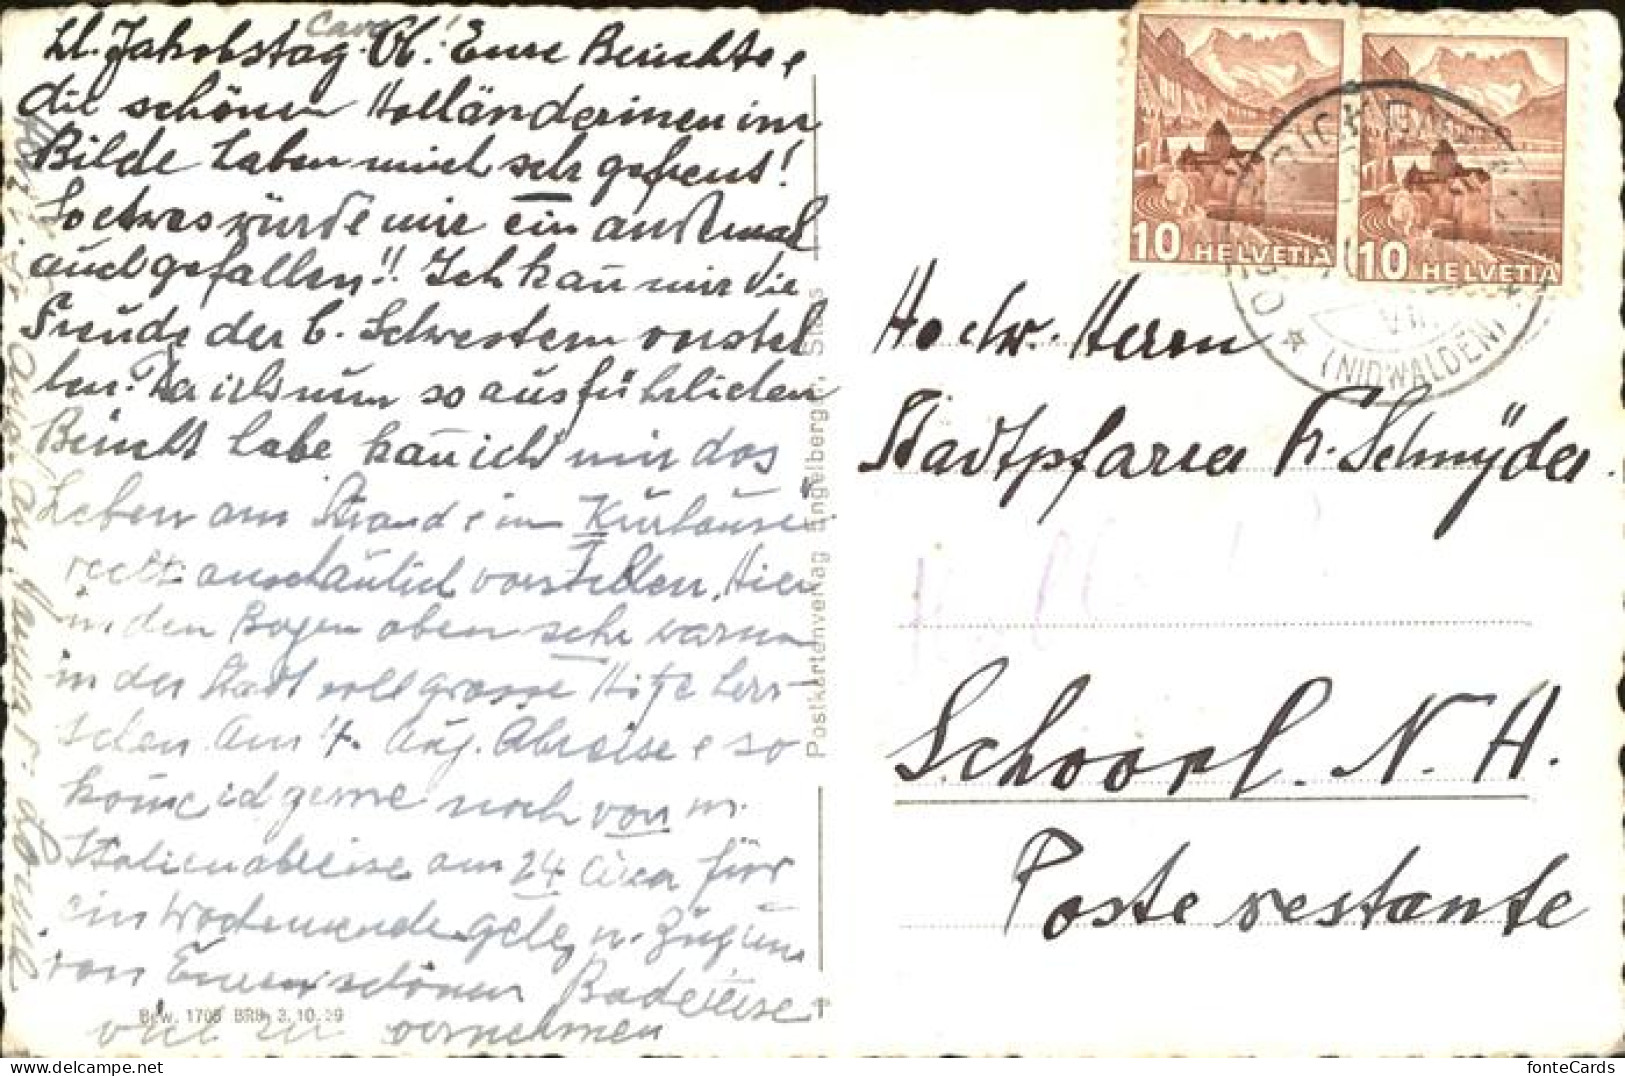 Caro!
Lb. Jakobstag. Ob! Eure Berichte &
die schönen Holländerinen im
Bilde haben mich sehr gefreut!
So etwas würde mir ein andermal
auch gefallen!! Ich kan̄ mir die
Freude der b. Schwestern vorstel
len. Da ich nun so ausführlichen
Bericht habe kan̄ ich mir das
Leben am Strand & im Kurhause
recht anschaulich vorstellen. Hier
in den Bogen oben sehr warm
in der Stadt soll grosse Hitze herr-
schen. Am 4. Aug. Abreise & so
käme ich gerne noch vor m.
Italienabreise am 24 circa für
ein Wochenende gelegn. Zug um
von Eurer schönen Badereise
viel zu vernehmen
Bew. 1705 BRB. 3.10.39
Postkartenverlag Engelberger, Stans
10 HELVETIA
10 HELVETIA
(NIDWALDEN)
Hochw. Herrn
Stadtpfarrer Fr. Schnyder.
Schoorl. N. H.
Poste restante
fonteCards